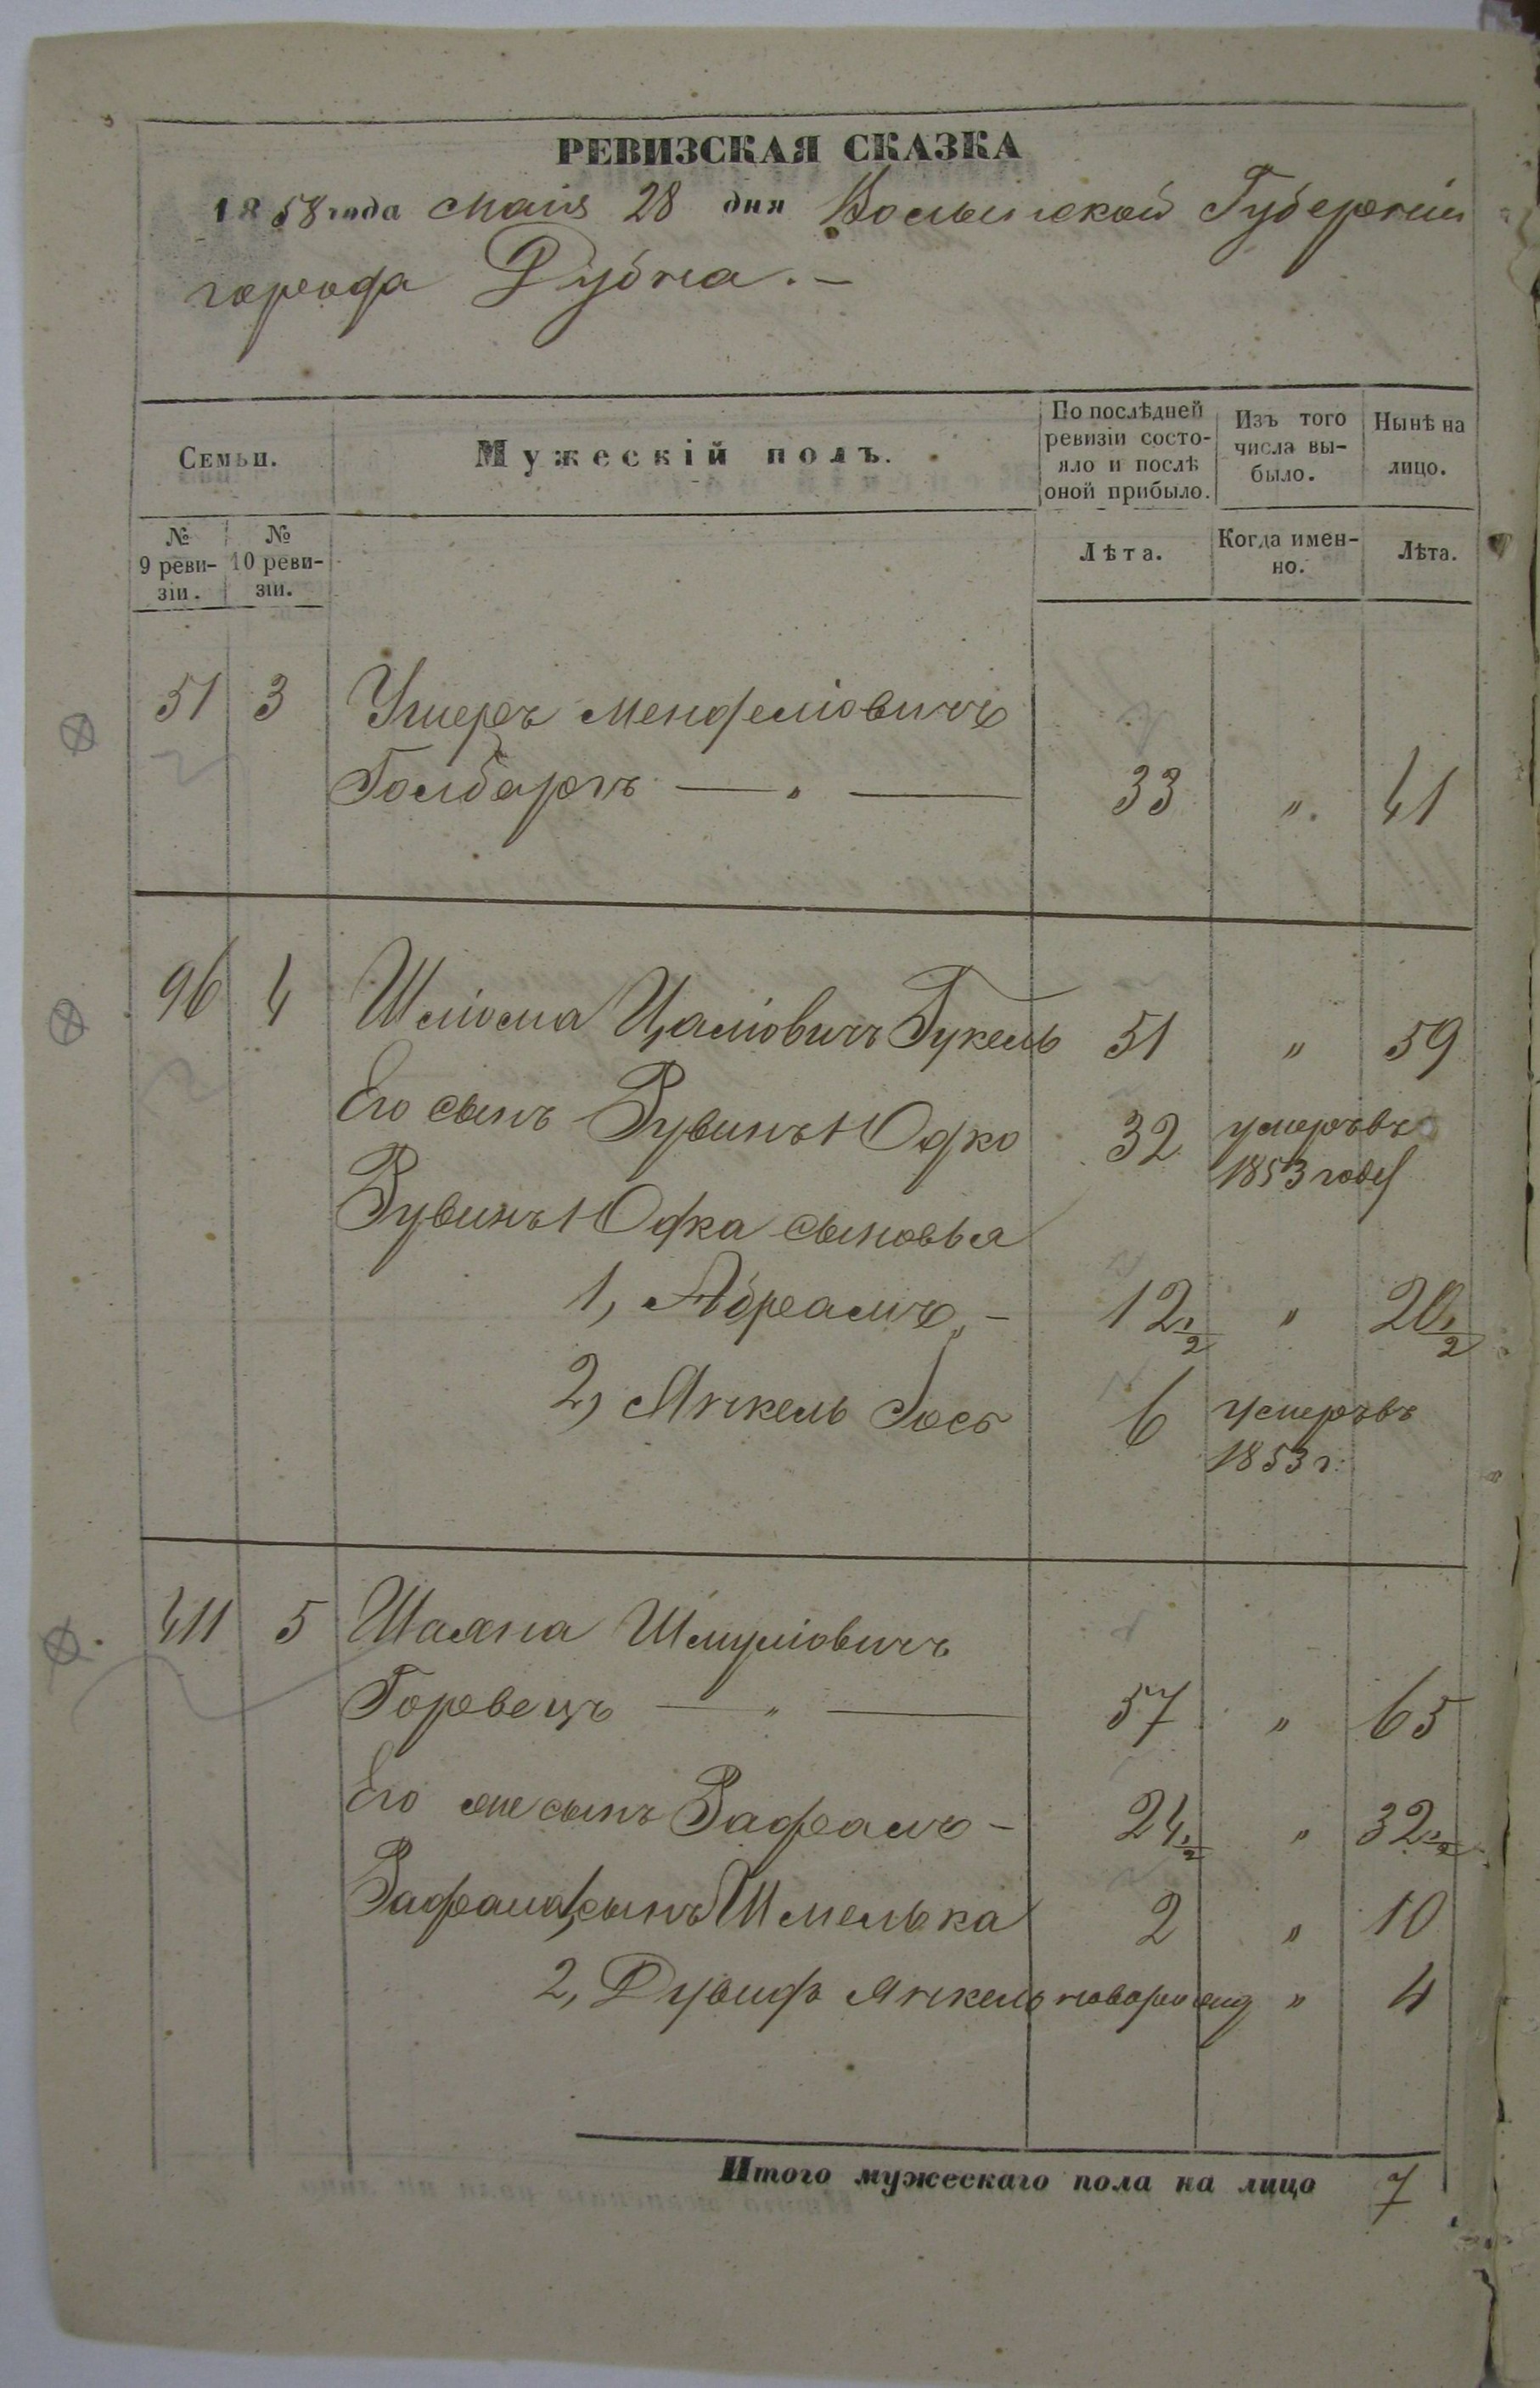 РЕВИЗСКАЯ СКАЗКА
1858 года Маія 28 дня Волынской Губерніи
города Дубна. –
Семьи.
Мужескій полъ.
По послѣдней ревизіи состояло и послѣ оной прибыло.
Изъ того числа выбыло.
Нынѣ на лицо.
№ 9 ревизіи.
№ 10 ревизіи.
Лѣта.
Когда именно.
Лѣта.
51 3 Ушеръ Менделіовичъ
Голбарнъ — „ — 33 „. 41
96 4 Шліома Цаліовичъ Гукель 51 „ 59
Его сынъ Рувинъ Юдко 32 умеръ въ
1853 году
Рувинъ Юдка сыновья
1, Абрамъ „ – 12 1/2 „ 20 1/2
2, Янкель Іосъ 6 умеръ въ
1853 г.
411 5 Шаяна Шмуліовичъ
Горовецъ — „ — 57 „ 65
Его же сынъ Рафаилъ – 24 1/2 „ 32 1/2
Рафаила 1, сынъ Шмелька 2 „ 10
2, Дувидъ Янкель новорожд „ 4
Итого мужескаго пола на лицо 7